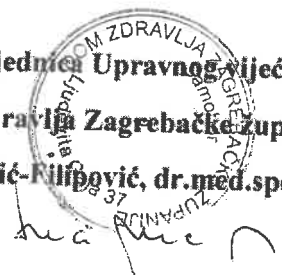 lednica Upravnog vijeć
ravlja Zagrebačke župa
ić-Filipović, dr.med.spe
DOM ZDRAVLJA ZAGREBAČKE ŽUPANIJE
Samobor
Ljudevita Gaja 37